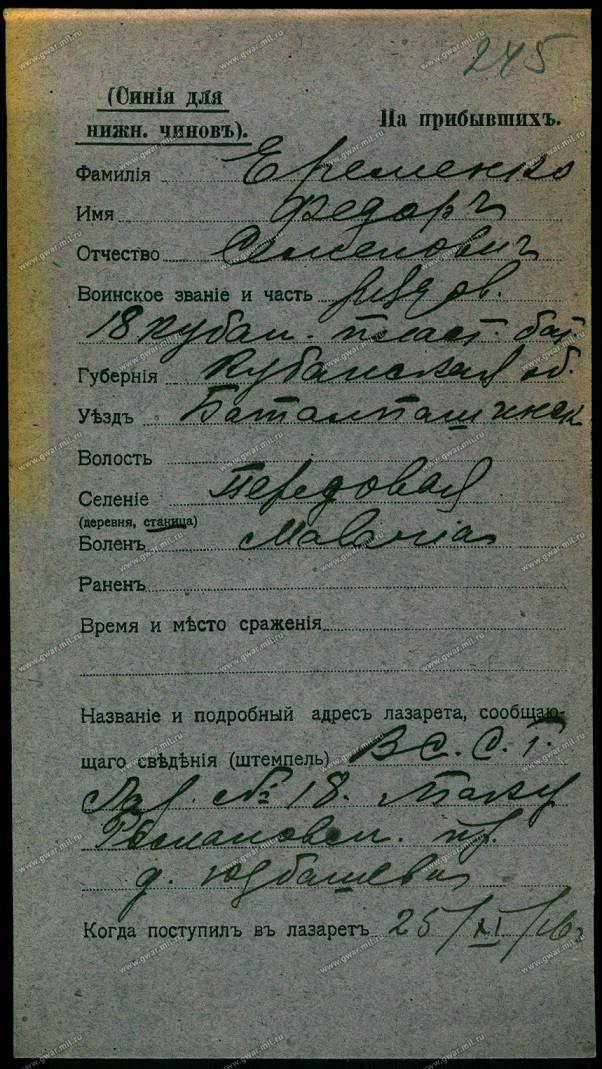 245
(Синія для
нижн. чиновъ).
На прибывшихъ.
Фамилія Еременко
Имя Федоръ
Отчество Семеновичъ
Воинское званіе и часть рядов.
18 кубан. пласт. бат.
Губернія Кубанская об.
Уѣздъ Баталпашинск
Волость
Селеніе Передовая
(деревня, станица)
Боленъ Malaria
Раненъ
Время и мѣсто сраженія
Названіе и подробный адресъ лазарета, сообщаю-
щаго свѣдѣнія (штемпель) В С. С. Г.
Лаз. № 18. Баку
Романовск. пр.
д. Юзбашева
Когда поступилъ въ лазаретъ 25/XI/16 г
www.gwar.mil.ru